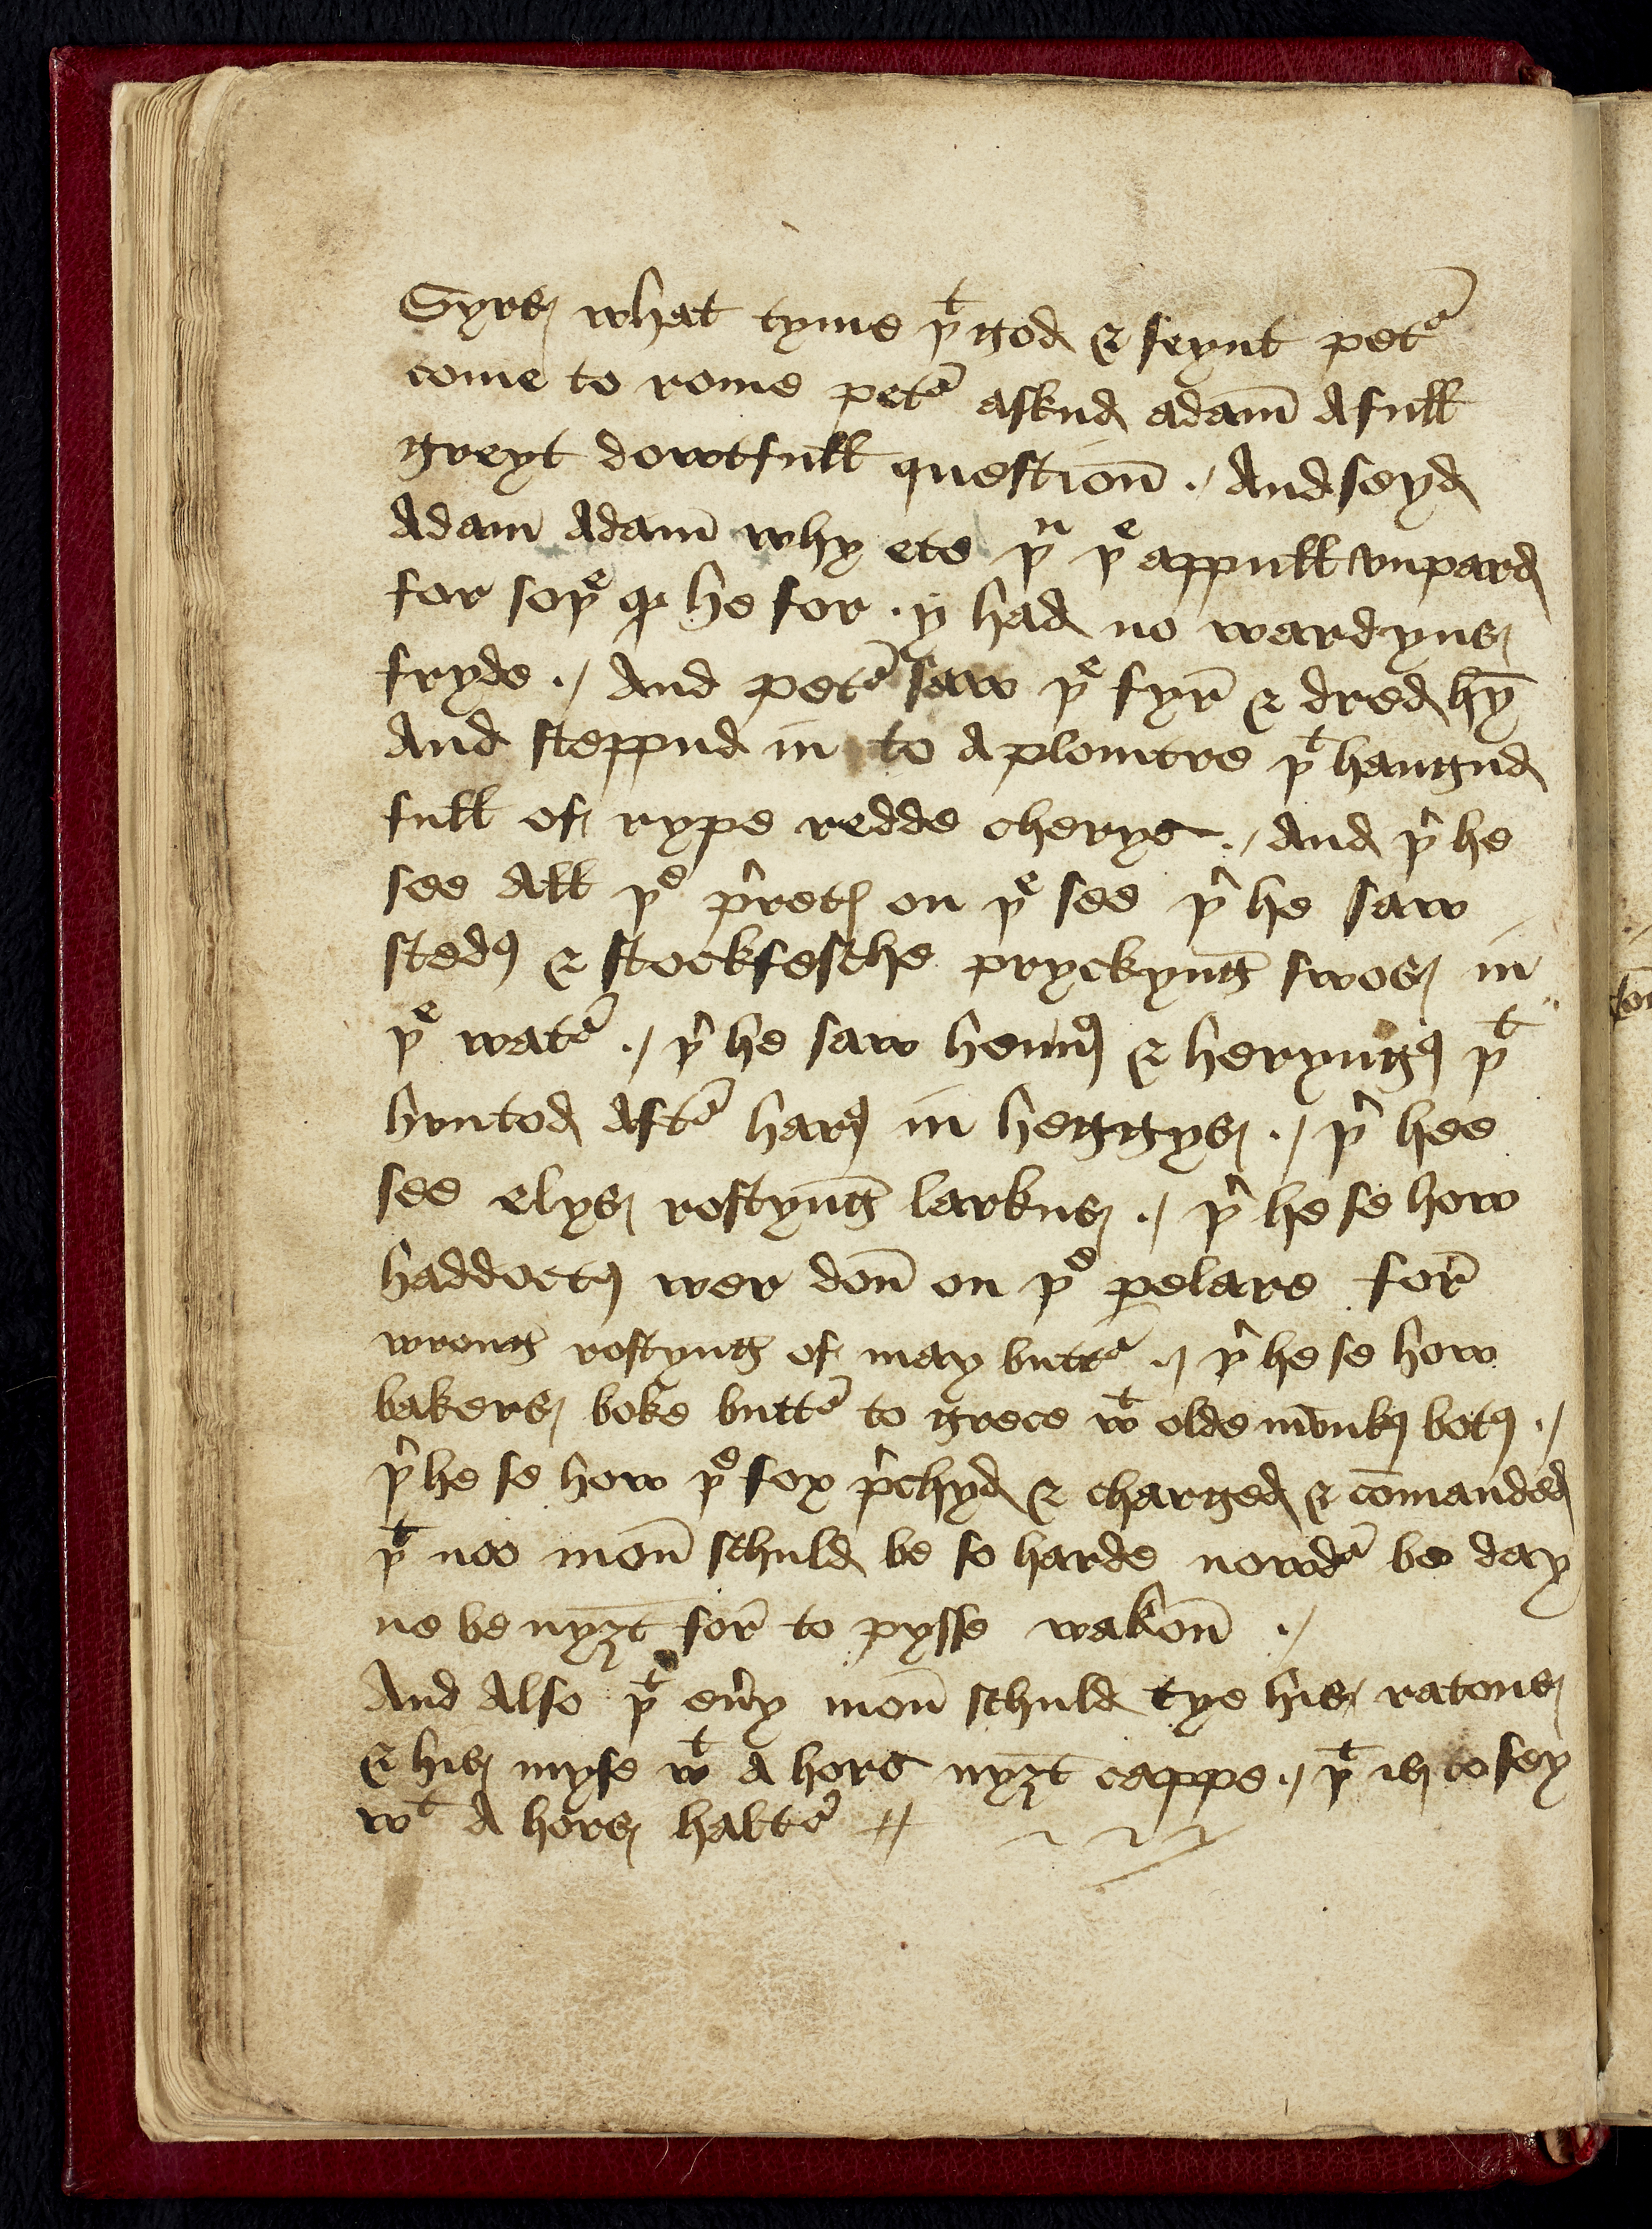 Syres what tyme þᵗ god & seynt pet᷑
come to rome pet᷑ askud adam̄ A full
greyt dowtfull questiōn ./ And seyd
Adam̄ Adam̄ why ete þᵘ þᵉ appull vnpard
for soþᵉ qᵈ he for . y had no wardyns
fryde ./ And pet᷑ saw þᵉ fyr̄ & dred hȳ
And steppud in to A plomtre þᵗ hangud
full of rype redde cherys ./ And þ᷑ he
see All þᵉ þ᷑retꝭ on þᵉ see þ᷑ he saw
stedꝭ & stockfesche pryckynḡ swos in
þᵉ wat᷑ ./ þ᷑ he saw hennꝭ & heryngꝭ þᵗ
huntod Aft᷑ harꝭ in heggys ./ þ᷑ hee
see elys rostynḡ larkus ./ þ᷑ he se how
haddoctꝭ wer dōn on þᵉ pelare for̄
wrong rostyng of may butt᷑ ./ þ᷑ he se how
bakers boke butt᷑ to grece wᵗ olde mvnkꝭ botꝭ ./
þ᷑ he se how þᵉ fox p᷑chyd & charged & cōmanded
þᵗ noo mōn schuld be so harde nowd᷑ be day
ne be nyȝt for̄ to pysse wakōn ./
And Also þᵗ eu᷑y mōn schuld tye his ratons
& his myse wᵗ A hors nyȝt cappe ./ þᵗ is to sey
wᵗ A hors halt᷑ //